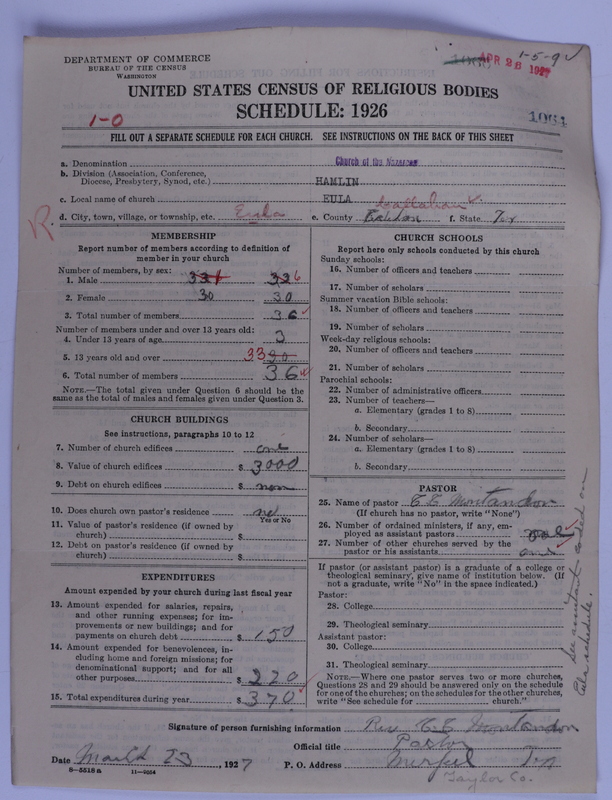 DEPARTMENT OF COMMERCE
BUREAU OF THE CENSUS
WASHINGTON
APR 28 1927
1-5-9
UNITED STATES CENSUS OF RELIGIOUS BODIES
SCHEDULE: 1926
1-0
1064
FILL OUT A SEPARATE SCHEDULE FOR EACH CHURCH. SEE INSTRUCTIONS ON THE BACK OF THIS SHEET
a. Denomination Church of the Nazarene
b. Division (Association, Conference,
Diocese, Presbytery, Synod, etc.) HAMLIN
c. Local name of church EULA
Callahan
d. City, town, village, or township, etc. Eula e. County f. State Tex
R
MEMBERSHIP
Report number of members according to definition of
member in your church
Number of members, by sex:
1. Male 6
2. Female 30 30
3. Total number of members 36
Number of members under and over 13 years old:
4. Under 13 years of age 3
5. 13 years old and over 33 30
6. Total number of members 36
NOTE.—The total given under Question 6 should be the
same as the total of males and females given under Question 3.
CHURCH BUILDINGS
See instructions, paragraphs 10 to 12
7. Number of church edifices one
8. Value of church edifices $ 3000
9. Debt on church edifices $ non
10. Does church own pastor's residence no
Yes or No
11. Value of pastor's residence (if owned by
church) $
12. Debt on pastor's residence (if owned by
church) $
EXPENDITURES
Amount expended by your church during last fiscal year
13. Amount expended for salaries, repairs,
and other running expenses; for im-
provements or new buildings; and for
payments on church debt $ 150
14. Amount expended for benevolences, in-
cluding home and foreign missions; for
denominational support; and for all
other purposes $ 220
15. Total expenditures during year $ 370
CHURCH SCHOOLS
Report here only schools conducted by this church
Sunday schools:
16. Number of officers and teachers
17. Number of scholars
Summer vacation Bible schools:
18. Number of officers and teachers
19. Number of scholars
Week-day religious schools:
20. Number of officers and teachers
21. Number of scholars
Parochial schools:
22. Number of administrative officers
23. Number of teachers—
a. Elementary (grades 1 to 8)
b. Secondary
24. Number of scholars—
a. Elementary (grades 1 to 8)
b. Secondary
PASTOR
25. Name of pastor C E Montandon
(If church has no pastor, write "None")
26. Number of ordained ministers, if any, em-
ployed as assistant pastors
27. Number of other churches served by the
pastor or his assistants one
If pastor (or assistant pastor) is a graduate of a college or
theological seminary, give name of institution below. (If
not a graduate, write "No" in the space indicated.)
Pastor:
28. College
29. Theological seminary
Assistant pastor:
30. College
31. Theological seminary
NOTE.—Where one pastor serves two or more churches,
Questions 28 and 29 should be answered only on the schedule
for one of the churches; on the schedules for the other churches,
write "See schedule for church."
See assistant coded on
schedule.
Signature of person furnishing information Rev. C E Montandon
Official title Pastor
Date March 23, 1927 P. O. Address Merkel Tex
Taylor Co.
8—5518 a 11—9564